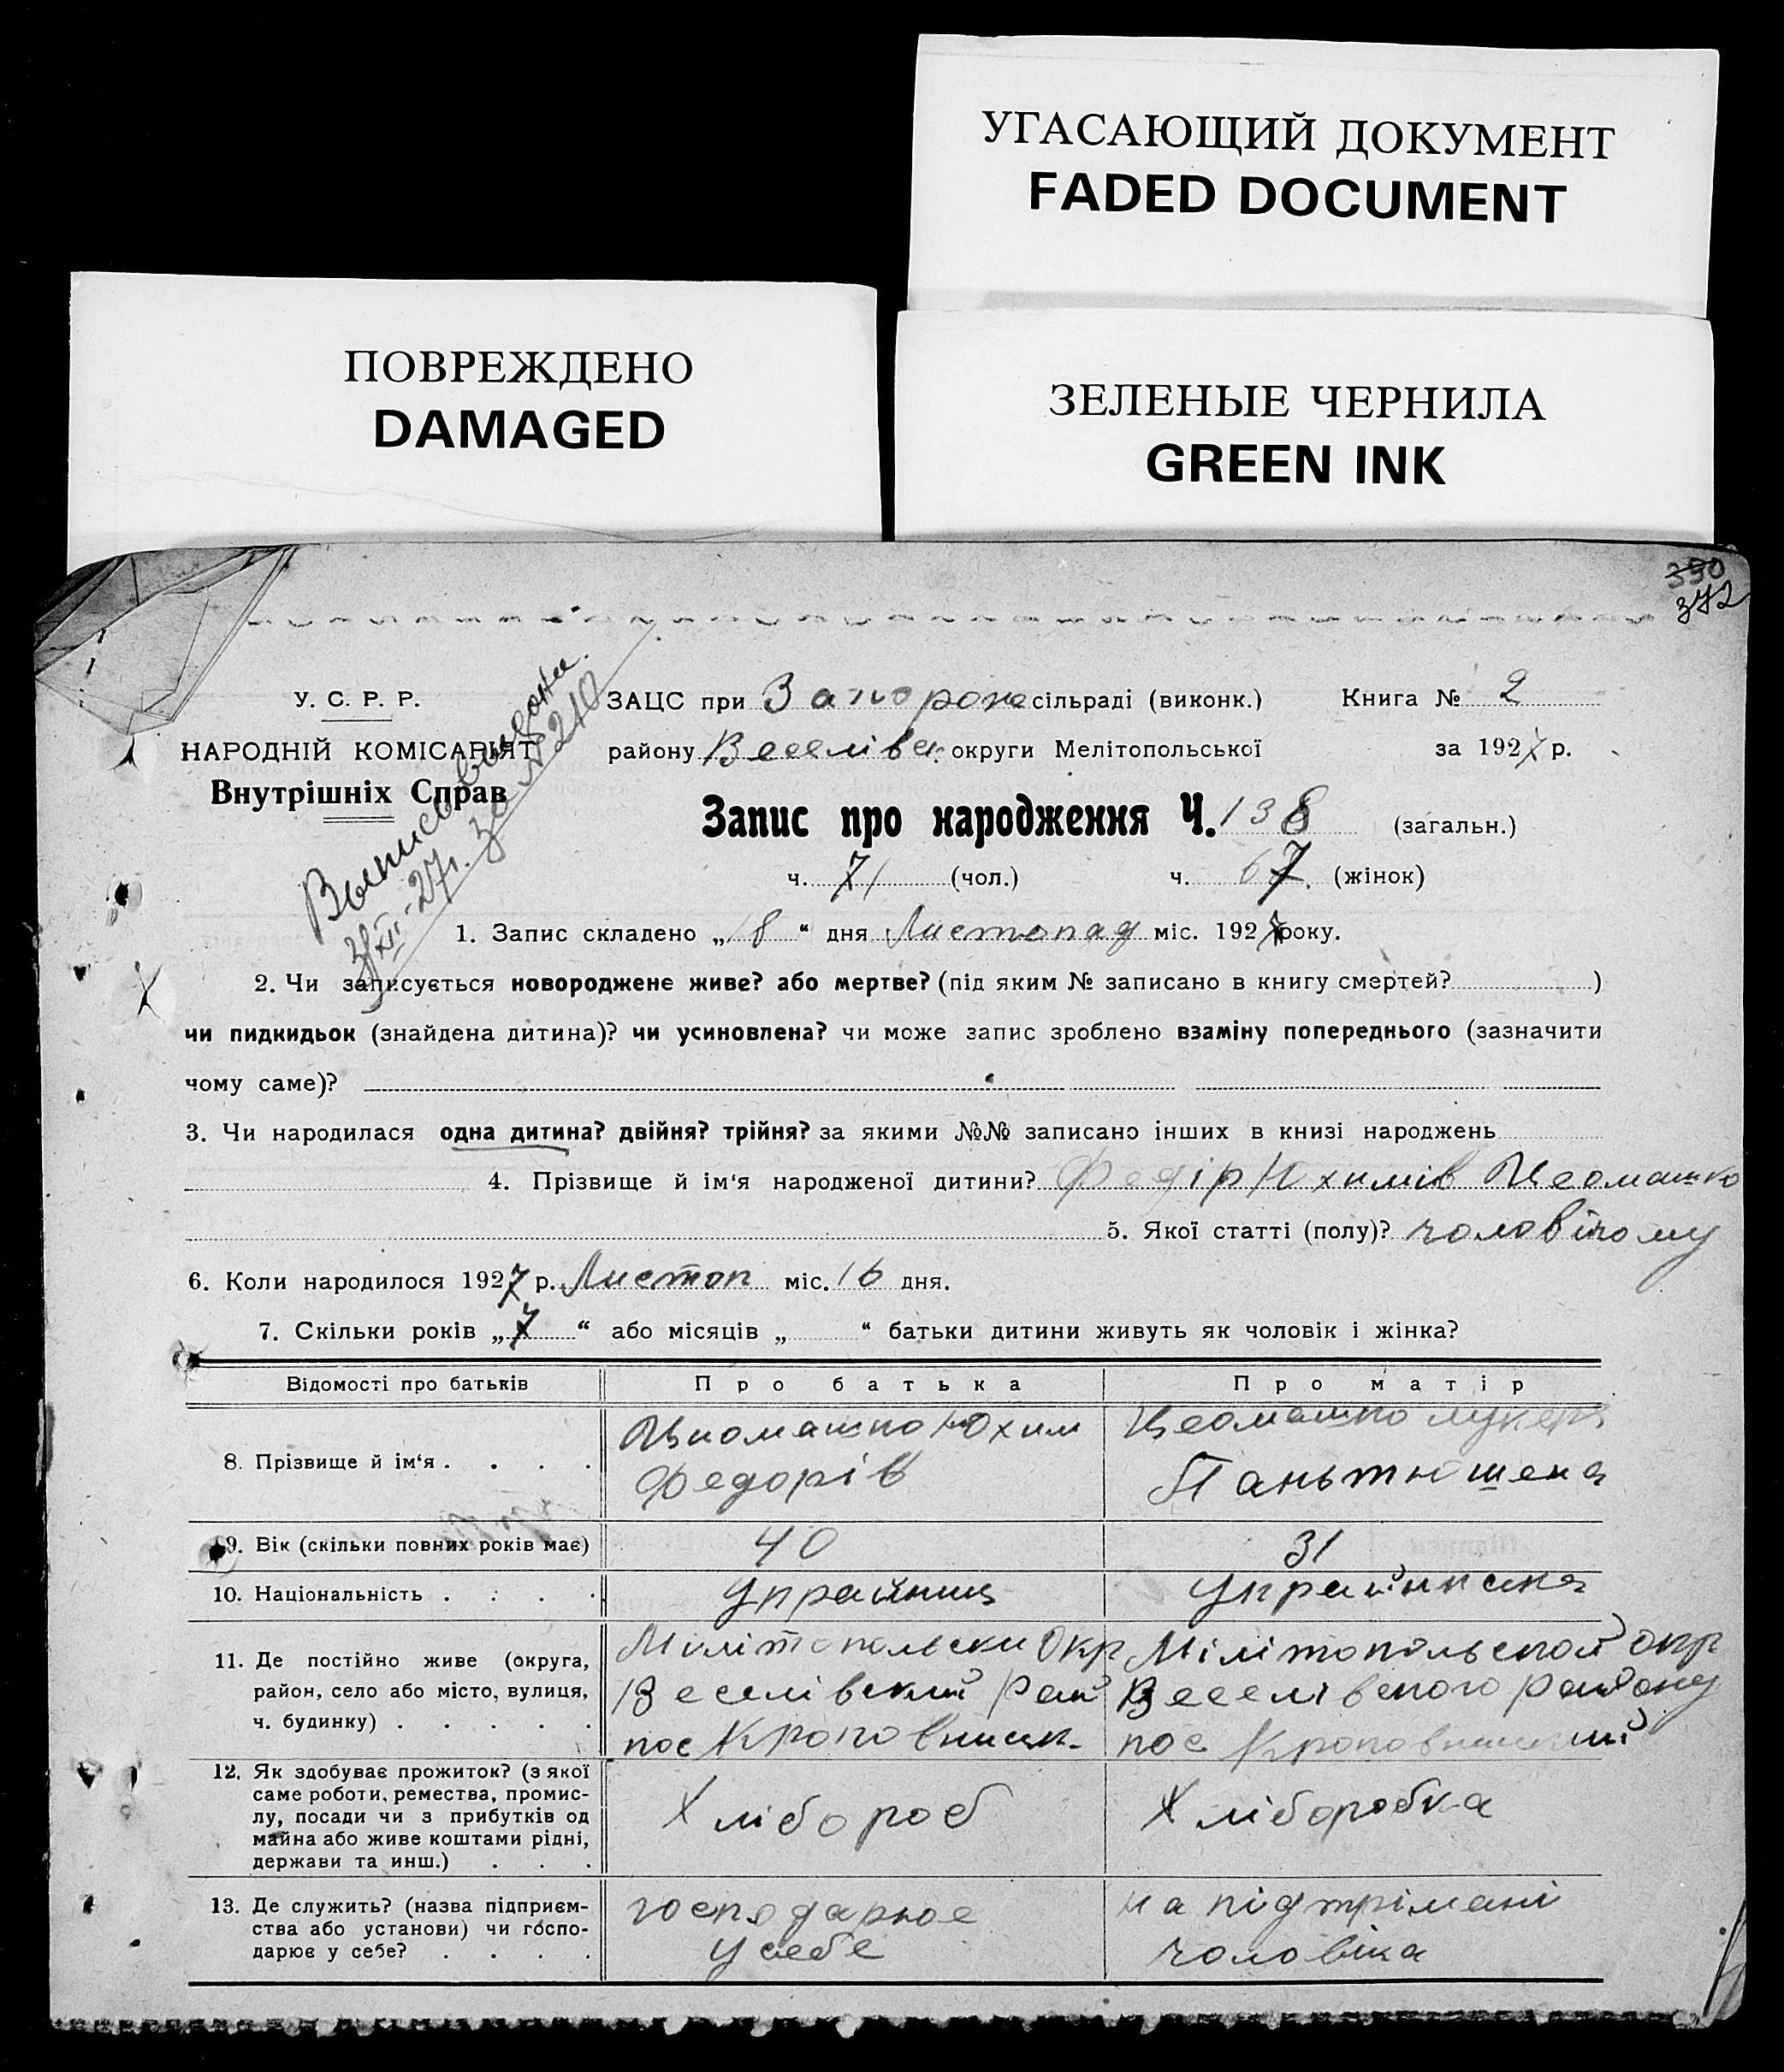 УГАСАЮЩИЙ ДОКУМЕНТ
FADED DOCUMENT
ПОВРЕЖДЕНО
DAMAGED
ЗЕЛЕНЫЕ ЧЕРНИЛА
GREEN INK
390
372
У. С. Р. Р.
НАРОДНІЙ КОМІСАРІЯТ
Внутрішніх Справ
за № 210
ЗАЦС при Запороже сільраді (виконк.) Книга № 2
району Веселівск округи Мелітопольської за 1927 р.
Запис про народження Ч. 138 (загальн.)
ч. 71 (чол.) ч. 67 (жінок)
1. Запис складено „18“ дня Листопад міс. 1927 року.
2. Чи записується новороджене живе? або мертве? (під яким № записано в книгу смертей? )
чи пидкидьок (знайдена дитина)? чи усиновлена? чи може запис зроблено взаміну попереднього (зазначити
чому саме)?
3. Чи народилася одна дитина? двійня? трійня? за якими №№ записано інших в книзі народжень
4. Прізвище й ім‘я народженої дитини? Федір Юхимів
5. Якої статті (полу)? чоловічому
6. Коли народилося 1927 р. Листоп міс. 16 дня.
7. Скільки років „7“ або місяців „ “ батьки дитини живуть як чоловік і жінка?
Відомості про батьків Про батька Про матір
8. Прізвище й ім‘я . . . . Юхим
Федорів
9. Вік (скільки повних років має) 40 31
10. Національність . : . . Украйинц Украйинска
11. Де постійно живе (округа,
район, село або місто, вулиця,
ч. будинку) . . . . .
Милітопольски Окр Мілітопольской окр
Веселівский Рай Веселівского Району
пос пос
12. Як здобуває прожиток? (з якої
саме роботи, ремества, промис-
лу, посади чи з прибутків од
майна або живе коштами рідні,
держави та инш.) . . .
Хлібороб Хліборобка
13. Де служить? (назва підприєм-
ства або установи) чи госпо-
дарює у себе? . . . .
господарює на підтрімані
у себе чоловіка